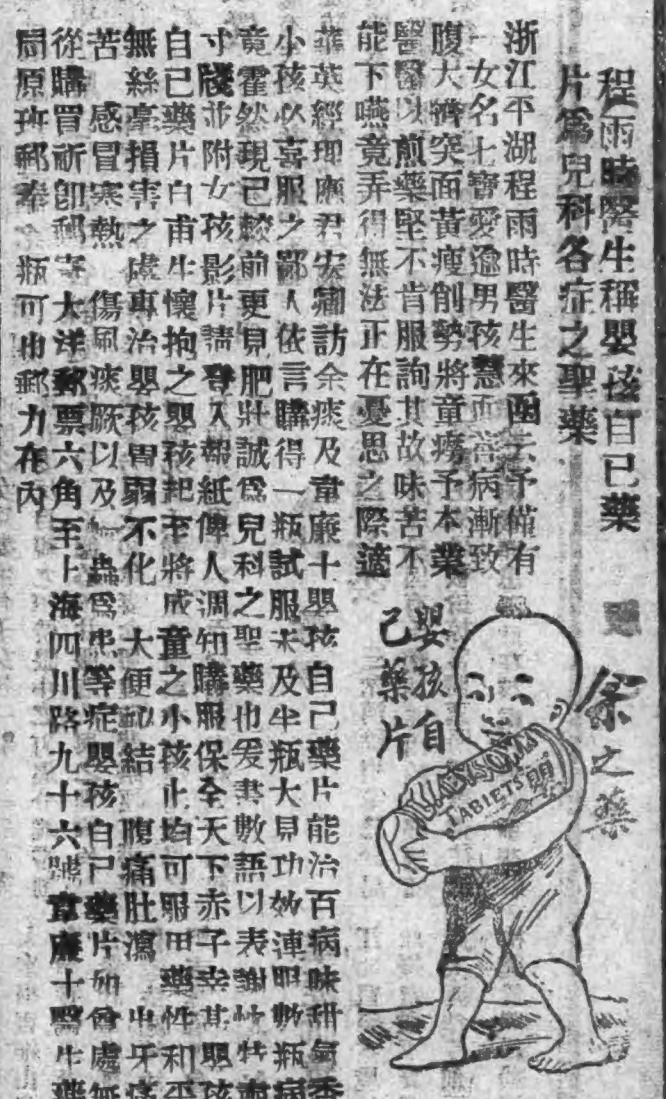 程雨時醫生稱嬰孩自已藥
片爲兒科各症之聖藥
浙江平湖程雨時醫生來函云予僅有
一女名七寶愛逾男孩慧而當病漸致
腹大臍突面黃瘦削勢將童癆予本業
醫醫以煎藥堅不肯服詢其故味苦不
能下嚥竟弄得無法正在憂思之際適
英經理應君安訪余談及韋廉士嬰孩自己藥片能治百病味甜氣香
小孩必喜服之鄙人依言購得一瓶試服未及半瓶大見功效連服數瓶病
竟霍然現已較前更見肥壯誠爲兒科之聖藥也爰書數語以表謝忱特
寸牋並附女孩影片請登入報紙俾人週知購服保全天下赤子幸甚嬰孩
自已藥片自甫生懷抱之嬰孩起至將成童之小孩止均可服用藥性和平
無絲毫損害之處專治嬰孩胃弱不化 大便祕結 腹痛肚瀉 出牙痛
苦 感冒寒熱 傷風痰厥以及蟲爲患等症嬰孩自已藥片如會處無
從購買祈卽郵寄大洋郵票六角至上海四川路九十六號韋廉士醫生藥
局原班郵奉 瓶可也郵力在內
余之藥
嬰孩自
己藥片
BABY'S OWN
TABLETS